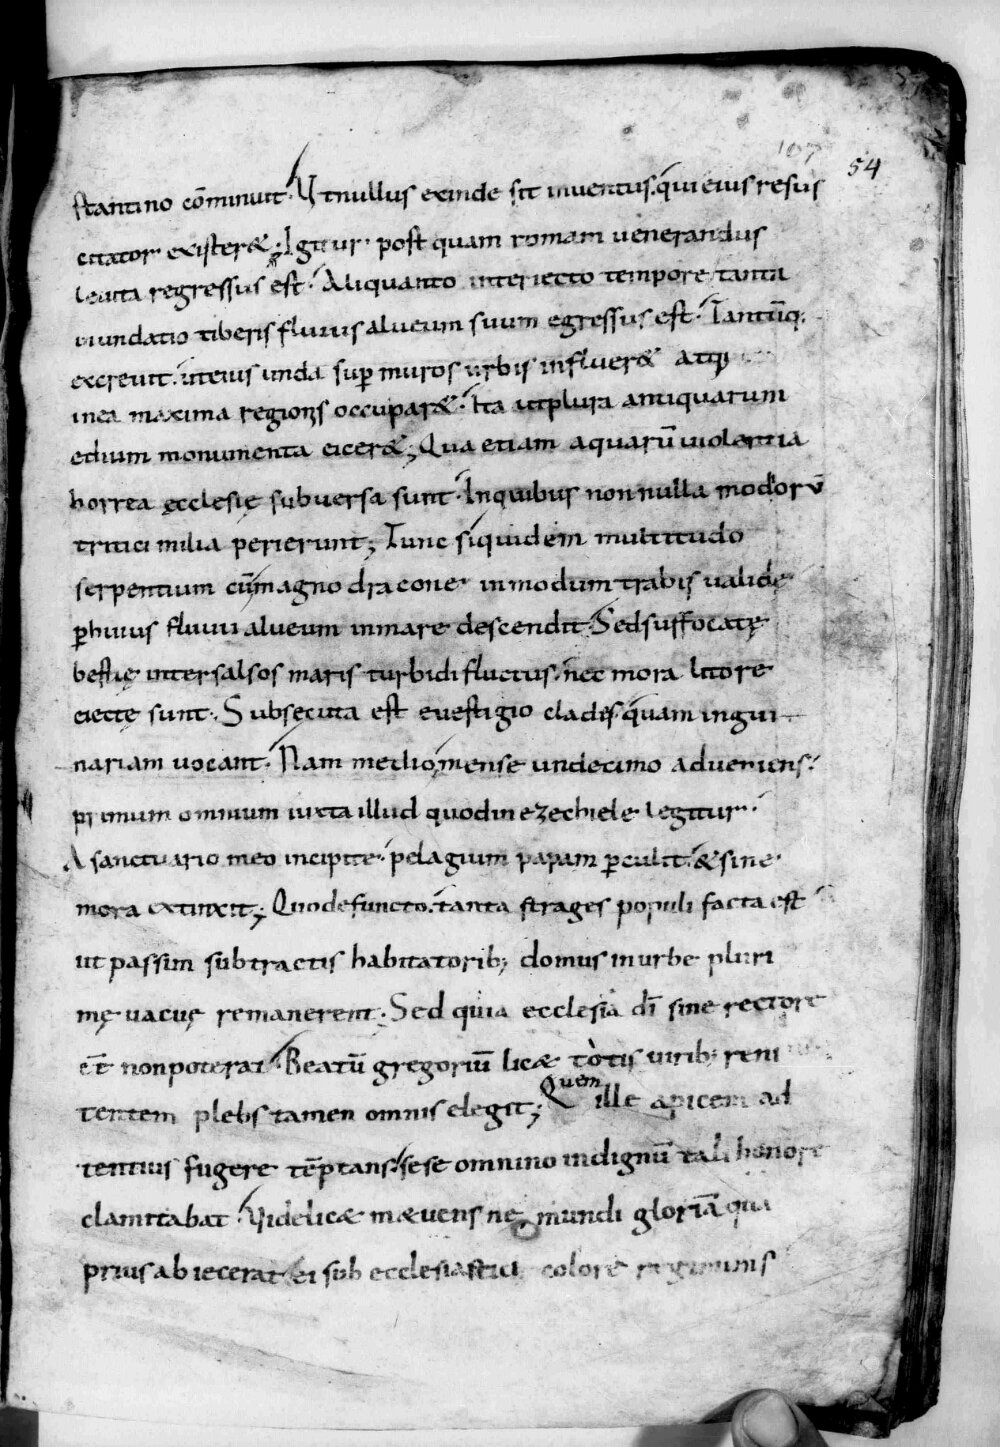 107 54
stantino cōminuit. Ut nullus exinde sit inventus. qui eius resus
citator existeret; Igitur postquam romam venerandus
levita regressus est. Aliquanto interiecto tempore tanta
inundatio tiberis fluvius alveum suum egressus est. Tantūq.
excrevit. ut eius unda sup muros urbis influeret atq
in ea maxima regionis occuparet. Ita ut plura antiquarum
edium monumenta eiceret; Qua etiam aquarū violentia
horrea ęcclesię subversa sunt. In quibus non nulla modiorū
tritici milia perierunt; Tunc siquidem multitudo
serpentium cū magno dracone in modum trabis validę
p huius fluvii alveum in mare descendit. Sed suffocatę
bestię inter salsos maris turbidi fluctus. nec mora litore
eiectę sunt. Subsecuta est e vestigio clades. quam ingui
nariam vocant. Nam medio mense undecimo adveniens.
primum omnium iuxta illud quod in ezechiele legitur.
A sanctuario meo incipite. pelagium papam pculit. & sine
mora extinxit; Quo defuncto. tanta strages populi facta est
ut passim subtractis habitatorib; domus in urbe pluri
mę vacuę remanerent. Sed quia ecclesia dī sine rectore
eē non poterat. Beatū gregoriū licet totis virib; reni
tentem plebs tamen omnis elegit; Quem ille apicem ad
tentius fugere tēptans. sese omnino indignū tali honore
clamitabat. Videlicet metuens ne mundi gloriā qua
prius abiecerat ei sub ecclesiastici colore regiminis